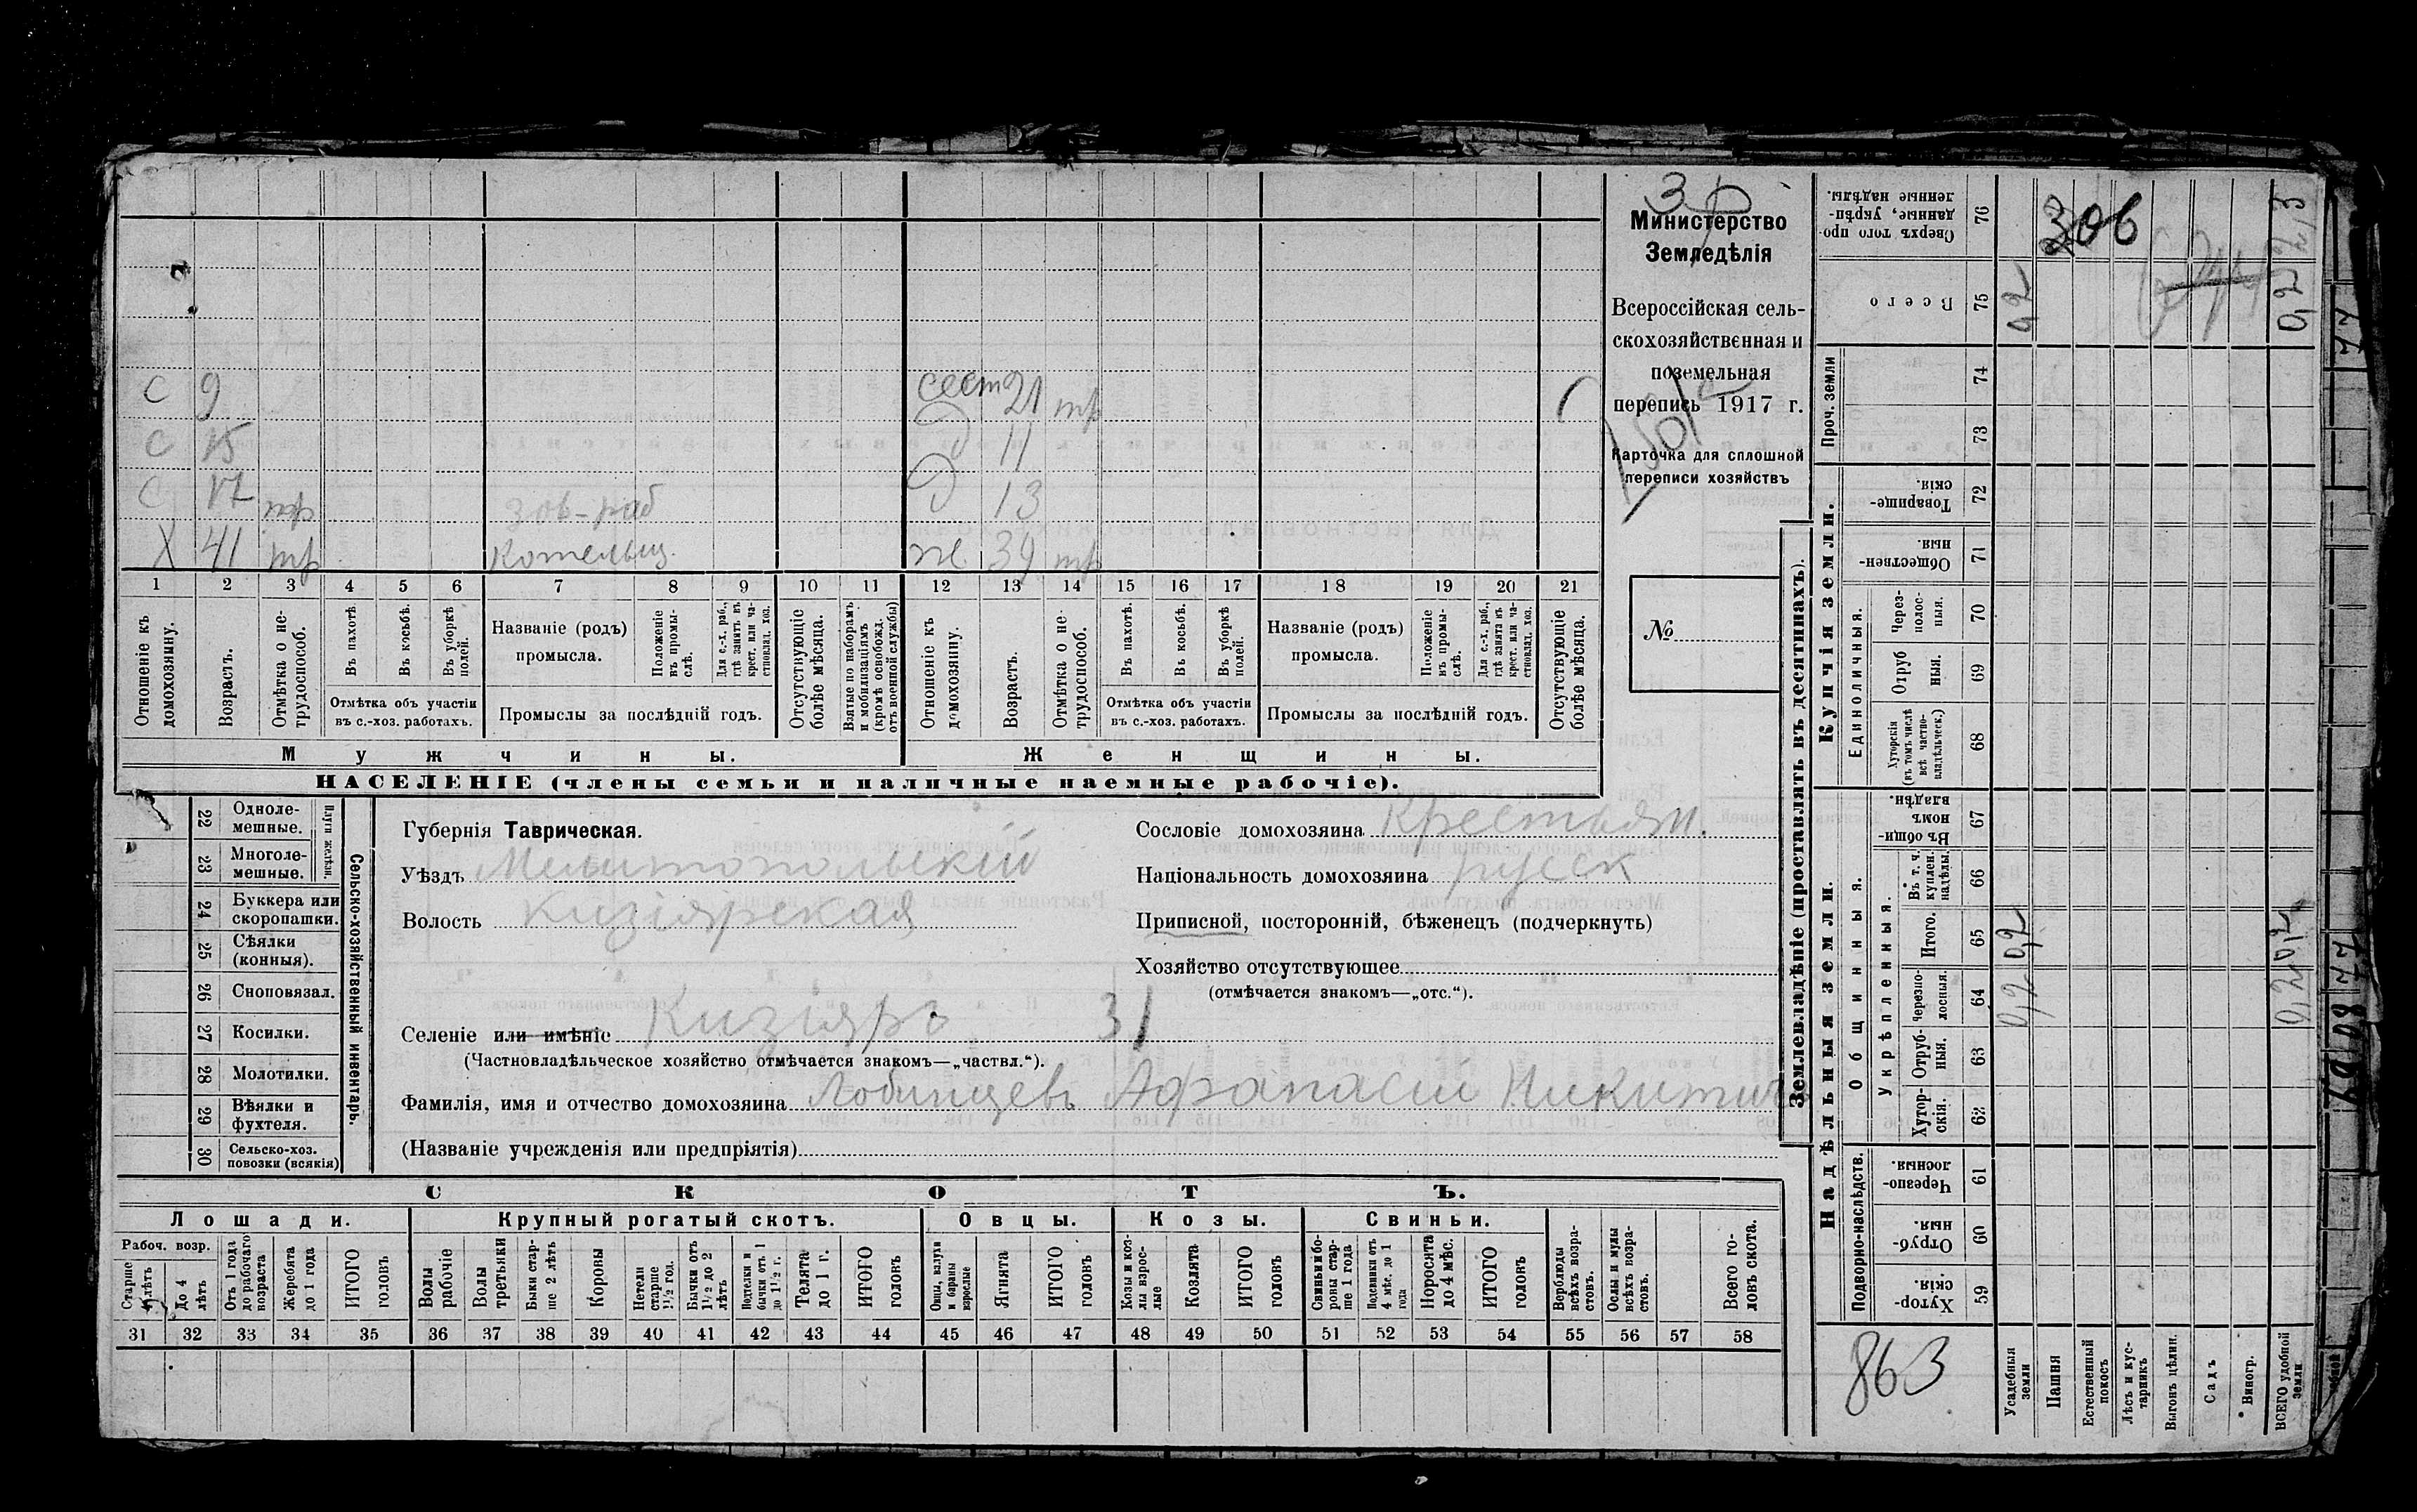 с 9 сест 21 тр
с 15 д 11
с 17 тр зав-раб д 13
Х 41 тр Котельщ. ж. 39 тр
1 2 3 4 5 6 7 8 9 10 11 12 13 14 15 16 17 18 19 20 21
Отношеніе къ домохозяину.
Возрастъ.
Отмѣтка о не-трудоспособ.
Въ пахотѣ.
Въ косьбѣ.
Въ уборкѣ полей.
Отмѣтка объ участіи въ с.-хоз. работахъ.
Названіе (родъ) промысла.
Положеніе въ промы-слѣ.
Для с.-х. раб., гдѣ занятъ въ крест. или ча-стновлад. хоз.
Промыслы за послѣдній годъ.
Отсутствующіе болѣе мѣсяца.
Взятые по наборамъ и мобилизаціямъ (кромѣ освобожд. отъ военной службы)
Отношеніе къ домохозяину.
Возрастъ.
Отмѣтка о не-трудоспособ.
Въ пахотѣ.
Въ косьбѣ.
Въ уборкѣ полей.
Отмѣтка объ участіи въ с.-хоз. работахъ.
Названіе (родъ) промысла.
Положеніе въ промы-слѣ.
Для с.-х. раб., гдѣ занята въ крест. или ча-стновлад. хоз.
Промыслы за послѣдній годъ.
Отсутствующіе болѣе мѣсяца.
Мужчины.
Женщины.
НАСЕЛЕНІЕ (члены семьи и наличные наемные рабочіе).
Министерство
Земледѣлія
Всероссійская сель-
скохозяйственная и
поземельная
перепись 1917 г.
Карточка для сплошной
переписи хозяйствъ
№
22 Одноле-мешные.
23 Многоле-мешные.
Плуги желѣзн.
24 Буккера или скоропашки.
25 Сѣялки (конныя).
26 Сноповязал.
27 Косилки.
28 Молотилки.
29 Вѣялки и фухтеля.
30 Сельско-хоз. повозки (всякія)
Сельско-хозяйственный инвентарь.
Губернія Таврическая.
Уѣздъ Мелитопольскій
Волость Кизіярская
Сословіе домохозяина Крестьян.
Національность домохозяина русск
Приписной, посторонній, бѣженецъ (подчеркнуть)
Хозяйство отсутствующее
(отмѣчается знакомъ—„отс.“).
Селеніе или имѣніе Кизіяръ 31
(Частновладѣльческое хозяйство отмѣчается знакомъ—„частвл.“).
Фамилія, имя и отчество домохозяина Лобинцевъ Афанасій Никитичъ
(Названіе учрежденія или предпріятія)
СКОТЪ.
Лошади. Крупный рогатый скотъ. Овцы. Козы. Свиньи.
Рабоч. возр.
Старше 4 лѣтъ
До 4 лѣтъ
Отъ 1 года до рабочаго возраста
Жеребята до 1 года
ИТОГО головъ
Волы рабочіе
Волы третьяки
Быки стар-ше 2 лѣтъ
Коровы
Нетели старше 1½ год.
Бычки отъ 1½ до 2 лѣтъ
Подтелки и бычки отъ 1 до 1½ г.
Телята до 1 г.
ИТОГО головъ
Овцы, валухи и бараны взрослые
Ягнята
ИТОГО головъ
Козы и коз-лы взрос-лые
Козлята
ИТОГО головъ
Свиньи и бо-ровы стар-ше 1 года
Подсвинки отъ 4 мѣс. до 1 года
Поросята до 4 мѣс.
ИТОГО головъ
Верблюды всѣхъ возра-стовъ.
Ослы и мулы всѣхъ возра-стовъ.
Всего го-ловъ скота.
31 32 33 34 35 36 37 38 39 40 41 42 43 44 45 46 47 48 49 50 51 52 53 54 55 56 57 58
Землевладѣніе (проставлять въ десятинахъ).
Надѣльныя земли.
Купчія земли.
Проч. земли
Подворно-наслѣдств.
Общинныя.
Укрѣпленныя.
Единоличныя.
Хутор-скія. 59
Отруб-ныя 60
Черезпо-лосныя. 61
Хутор-скія. 62
Отруб-ныя. 63
Черезпо-лосныя. 64
Итого. 65
Въ т. ч. куплен. надѣлы. 66
Въ общи-номъ владѣн. 67
Хуторскія (въ томъ числѣ всѣ частно-владѣльческ.) 68
Отруб ныя. 69
Через-полос-ныя. 70
Обществен-ныя. 71
Товарище-скія. 72
73
74
Всего 75
Сверхъ того про-данные, укрѣп-ленные надѣлы. 76
Усадебныя земли 0,2 0,2 0,2
Пашня 306
Естественный покосъ
Лѣсъ и кус-тарникъ
Выгонъ цѣлин.
Садъ
Виногр.
ВСЕГО удобной земли 0,2 0,2 0,2
863